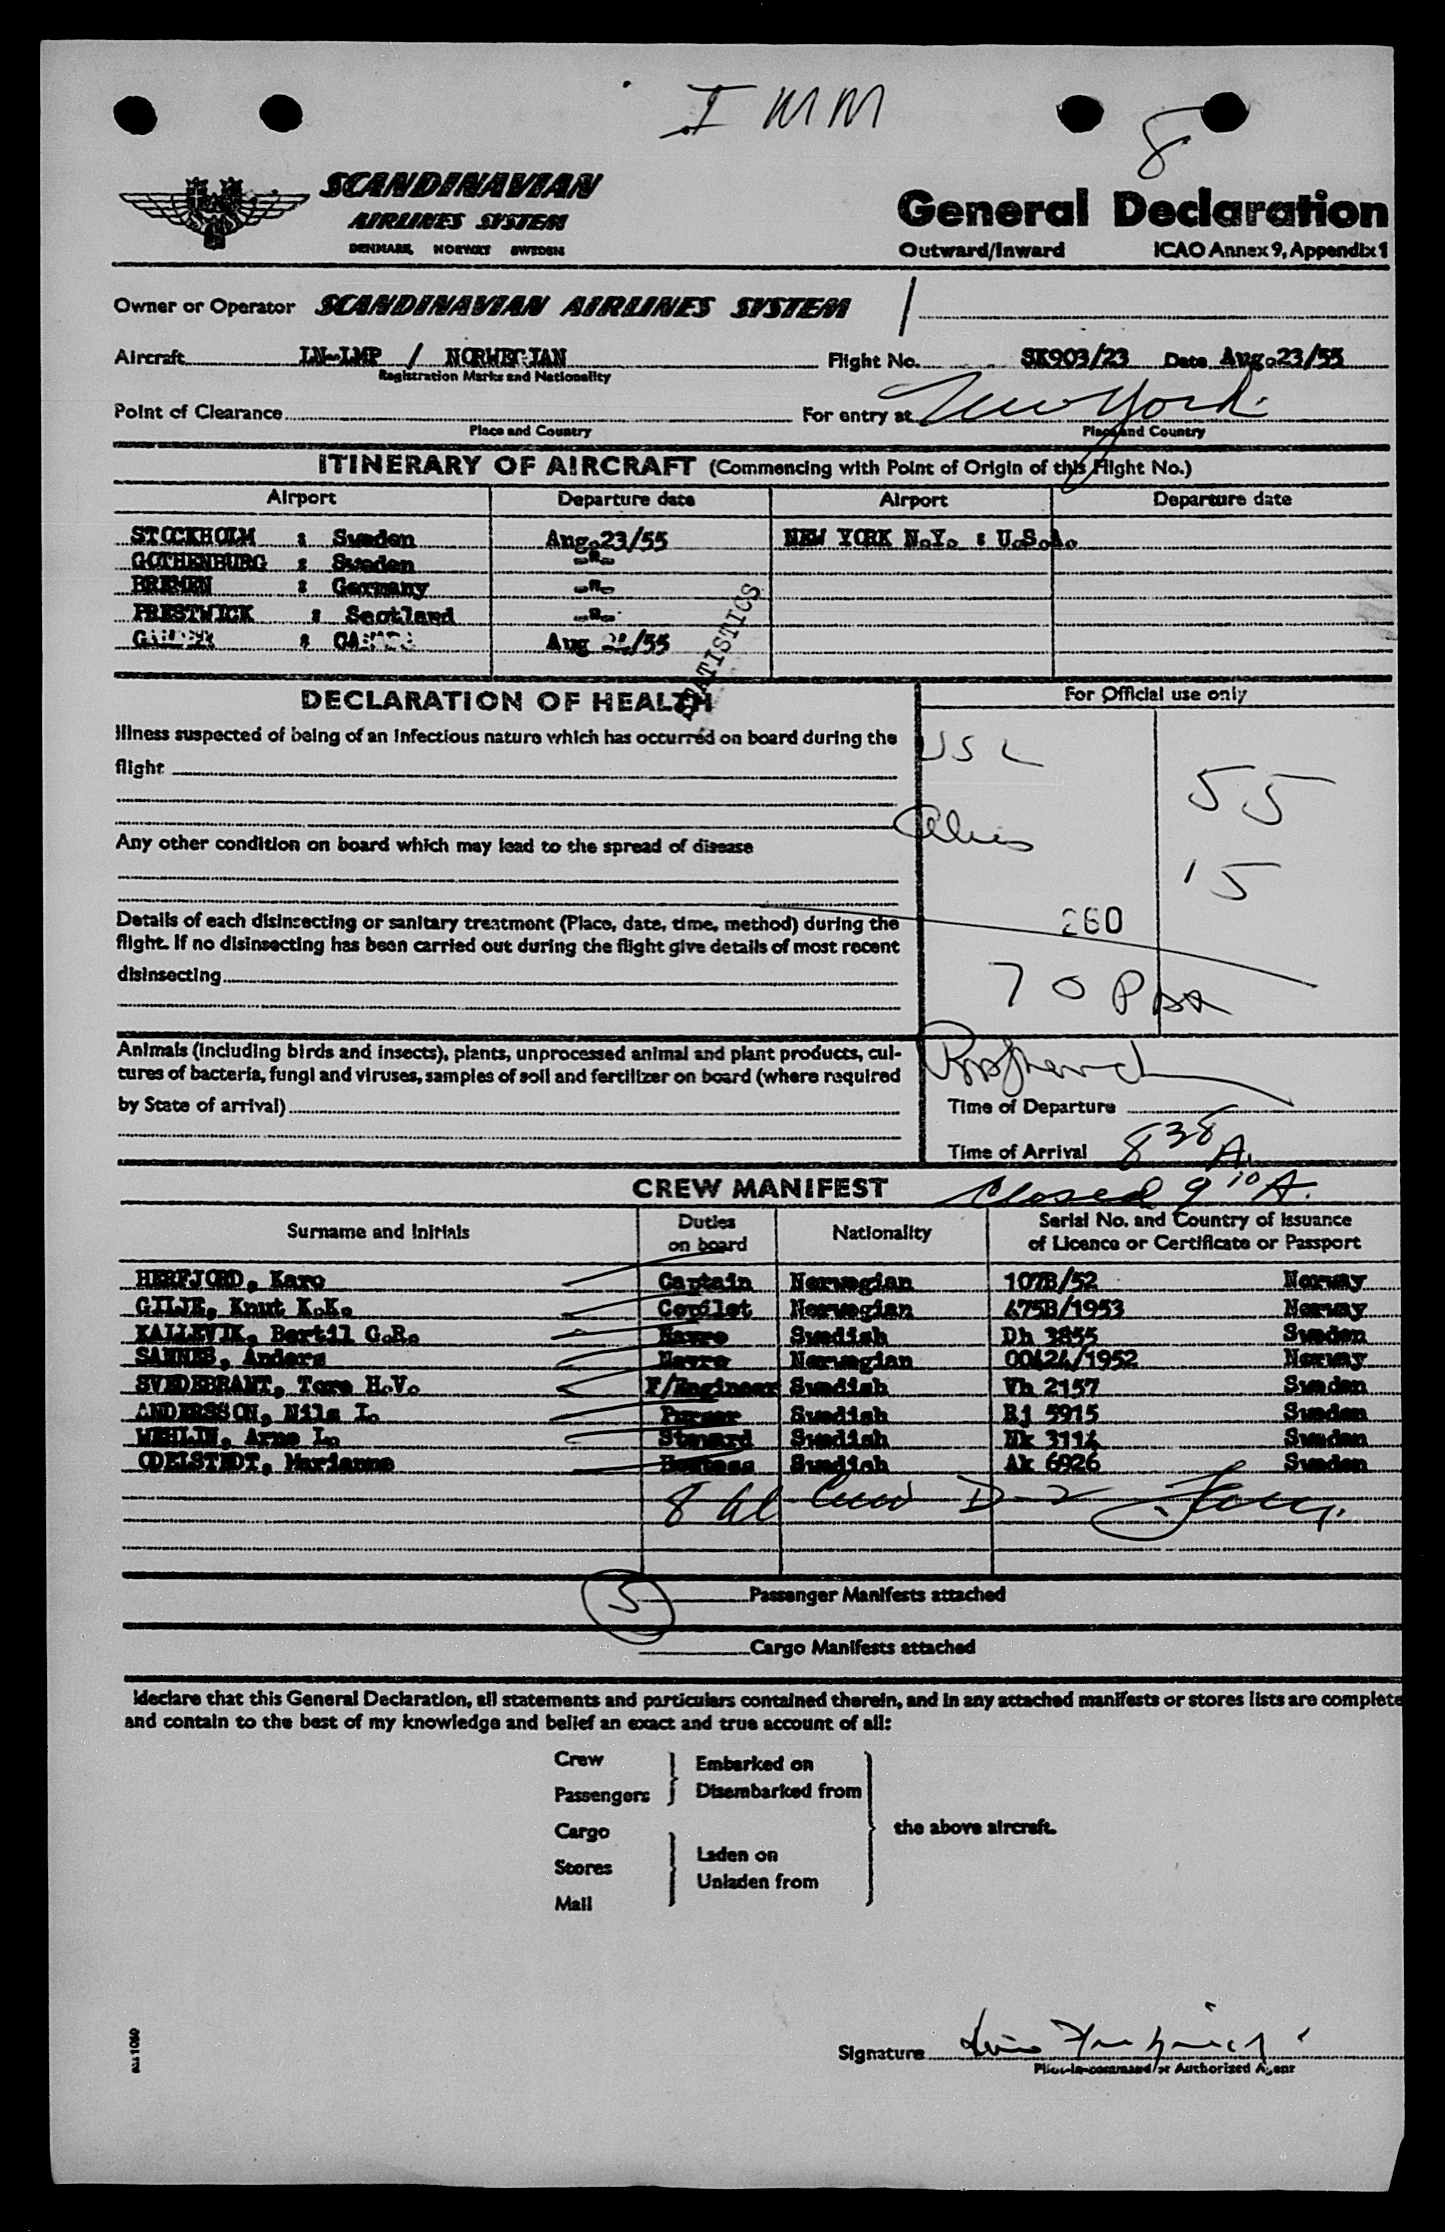 I MM
8
SCANDINAVIAN
AIRLINES SYSTEM
DENMARK NORWAY SWEDEN
General Declaration
Outward/Inward ICAO Annex 9, Appendix 1
Owner or Operator SCANDINAVIAN AIRLINES SYSTEM
Aircraft LN-LMP / NORWEGIAN Flight No. SK903/23 Date Aug.23/55
Registration Marks and Nationality
Point of Clearance For entry at New York
Place and Country Place and Country
ITINERARY OF AIRCRAFT (Commencing with Point of Origin of this Flight No.)
Airport Departure date Airport Departure date
STOCKHOLM : Sweden Aug.23/55 NEW YORK N.Y. : U.S.A.
GOTHENBURG : Sweden -"-
BREMEN : Germany -"-
PRESTWICK : Scotland -"-
GANDER : CANADA Aug 24/55
STATISTICS
DECLARATION OF HEALTH
For Official use only
Illness suspected of being of an infectious nature which has occurred on board during the
flight
USC 55
Any other condition on board which may lead to the spread of disease
Aliens 15
Details of each disinsecting or sanitary treatment (Place, date, time, method) during the
flight. If no disinsecting has been carried out during the flight give details of most recent
disinsecting
260
70 Pax
Animals (including birds and insects), plants, unprocessed animal and plant products, cul-
tures of bacteria, fungi and viruses, samples of soil and fertilizer on board (where required
by State of arrival)
Time of Departure
Time of Arrival 8 38 A.
CREW MANIFEST Closed 9 10 A.
Surname and Initials Duties on board Nationality Serial No. and Country of Issuance of Licence or Certificate or Passport
HERFJORD, Karo Captain Norwegian 107B/52 Norway
GILJE, Knut K.K. Copilot Norwegian 475B/1953 Norway
KALLEVIK, Bertil G.R. Navro Swedish Dh 3855 Sweden
SANNES, Anders Navro Norwegian 00424/1952 Norway
SVEDEBRANT, Tore H.V. F/Engineer Swedish Vh 2157 Sweden
ANDERSSON, Nils I. Purser Swedish Rj 5915 Sweden
WEHLIN, Arne L. Steward Swedish Nk 3114 Sweden
ODELSTEDT, Marianne Hostess Swedish Ak 6926 Sweden
8 al Crew D-2
5 Passenger Manifests attached
Cargo Manifests attached
I declare that this General Declaration, all statements and particulars contained therein, and in any attached manifests or stores lists are complete
and contain to the best of my knowledge and belief an exact and true account of all:
Crew Embarked on
Passengers Disembarked from
Cargo the above aircraft.
Stores Laden on
Unladen from
Mail
Signature
Pilot-in-command/or Authorized Agent